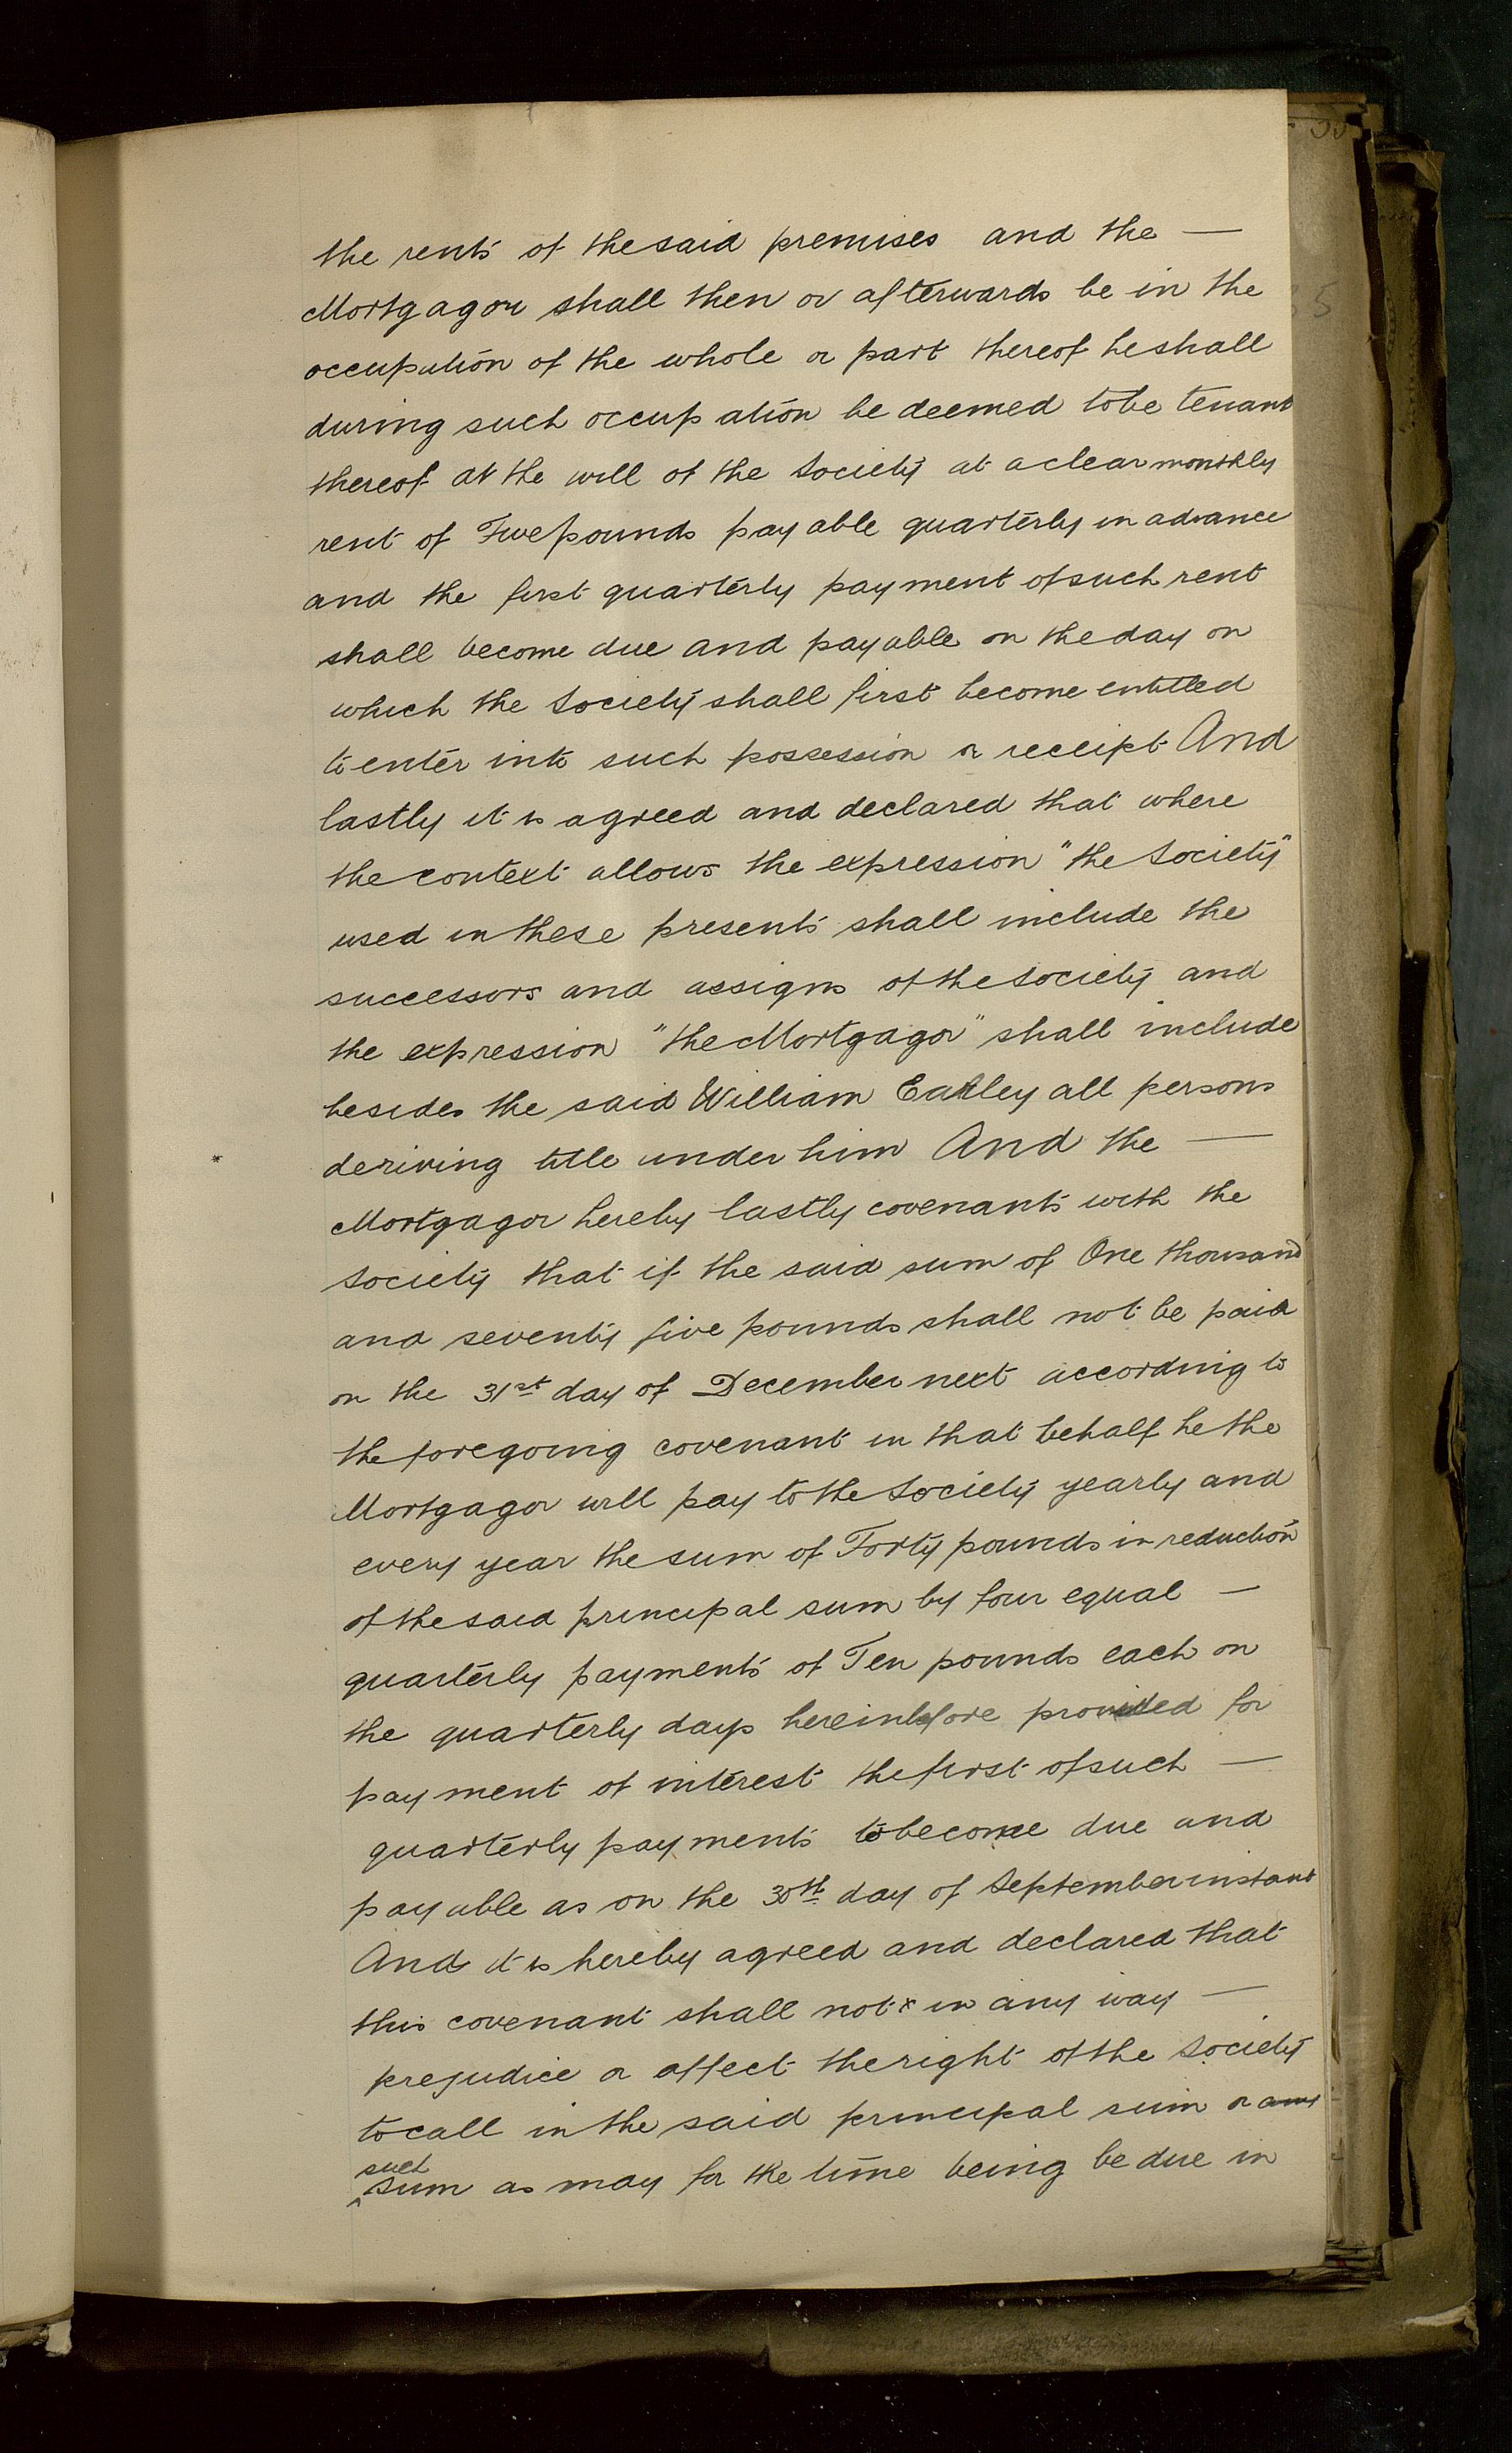 the rents of the said premises and the —
Mortgagor shall then or afterwards be in the
occupation of the whole or part thereof he shall
during such occupation be deemed to be tenant
thereof at the will of the Society at a clear monthly
rent of Five pounds payable quarterly in advance
and the first quarterly payment of such rent
shall become due and payable on the day on
which the Society shall first become entitled
to enter into such possession or receipt And
lastly it is agreed and declared that where
the context allows the expression "the Society"
used in these presents shall include the
successors and assigns of the Society and
the expression "the Mortgagor" shall include
besides the said William Earley all persons
deriving title under him And the —
Mortgagor hereby lastly covenants with the
Society that if the said sum of One thousand
and seventy five pounds shall not be paid
on the 31st day of December next according to
the foregoing covenant in that behalf he the
Mortgagor will pay to the Society yearly and
every year the sum of Forty pounds in reduction
of the said principal sum by four equal —
quarterly payments of Ten pounds each on
the quarterly days hereinbefore provided for
payment of interest the first of such —
quarterly payments to become due and
payable as on the 30th day of September instant
And it is hereby agreed and declared that
this covenant shall not x in any way —
prejudice or affect the right of the Society
to call in the said principal sum or any
such
sum as may for the time being be due in